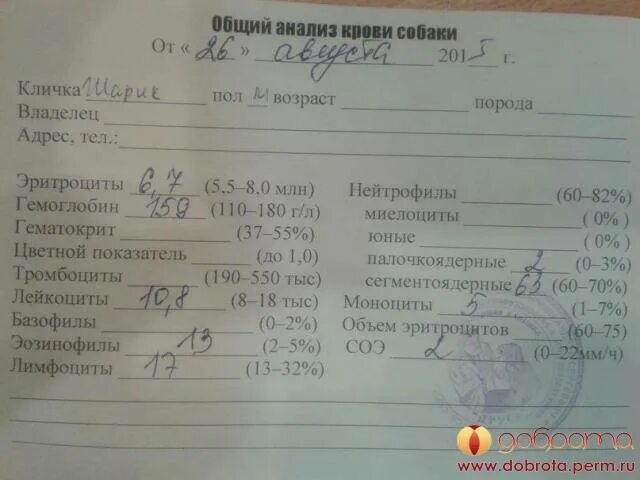 Общий анализ крови собаки
От « 26 » августа 2015 г.
Кличка Шарик пол М возраст порода
Владелец
Адрес, тел.:
Эритроциты 6,7 (5,5–8,0 млн)
Гемоглобин 159 (110–180 г/л)
Гематокрит (37–55%)
Цветной показатель (до 1,0)
Тромбоциты (190–550 тыс)
Лейкоциты 10,8 (8–18 тыс)
Базофилы (0–2%)
Эозинофилы 13 (2–5%)
Лимфоциты 17 (13–32%)
Нейтрофилы (60–82%)
миелоциты ( 0% )
юные ( 0% )
палочкоядерные 2 (0–3%)
сегментоядерные 63 (60–70%)
Моноциты 5 (1–7%)
Объем эритроцитов (60–75)
СОЭ 2 (0–22мм/ч)
доброта
www.dobrota.perm.ru